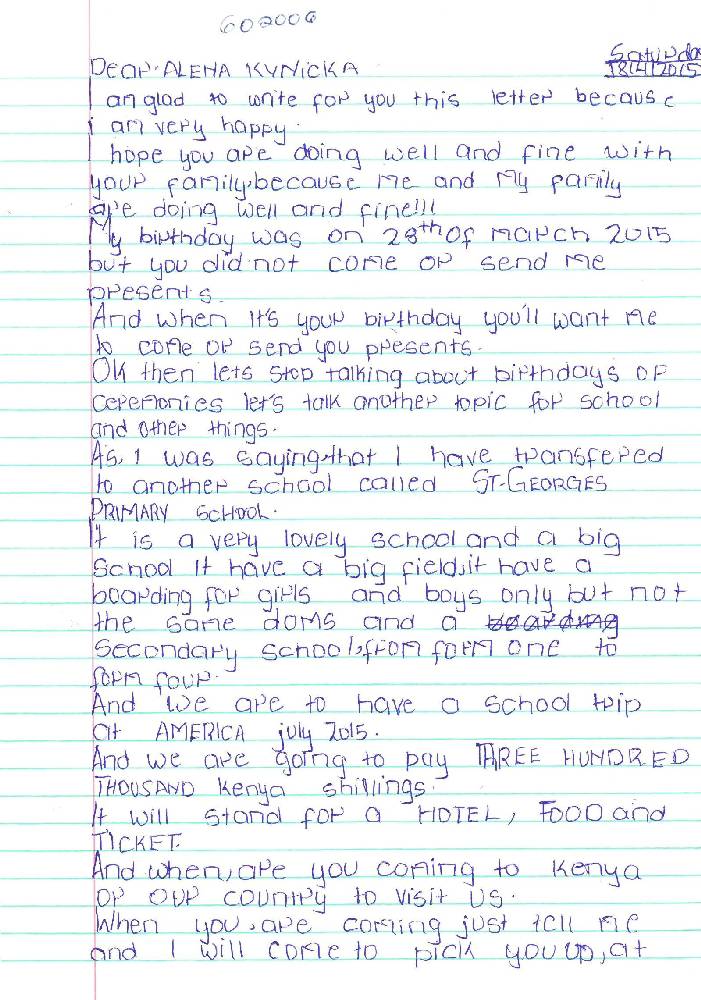 602006
Saturda
18/4/2015
Dear. ALENA KYNICKA
I am glad to write for you this letter because
i am very happy.
I hope you are doing well and fine with
your family, because me and My family
are doing well and fine!!!
My birthday was on 28th Of march 2015
but you did not come or send me
presents.
And when it's your birthday you'll want me
to come or send you presents.
Ok then lets stop talking about birthdays or
ceremonies let's talk another topic for school
and other things.
As, I was saying that I have transfered
to another school called ST-GEORGES
PRIMARY SCHOOL.
It is a very lovely school and a big
School It have a big field, it have a
boarding for girls and boys only but not
the same doms and a boarding
Secondary school, from form one to
form four.
And we are to have a school trip
at AMERICA july 2015.
And we are going to pay THREE HUNDRED
THOUSAND Kenya shillings.
It will stand for a HOTEL, FOOD and
TICKET.
And when, are you coming to Kenya
or our country to visit us.
When you are coming just tell me
and I will come to pick you up, at